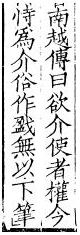 南越傳曰欲介使者權今
恃為介俗作戤無以下筆